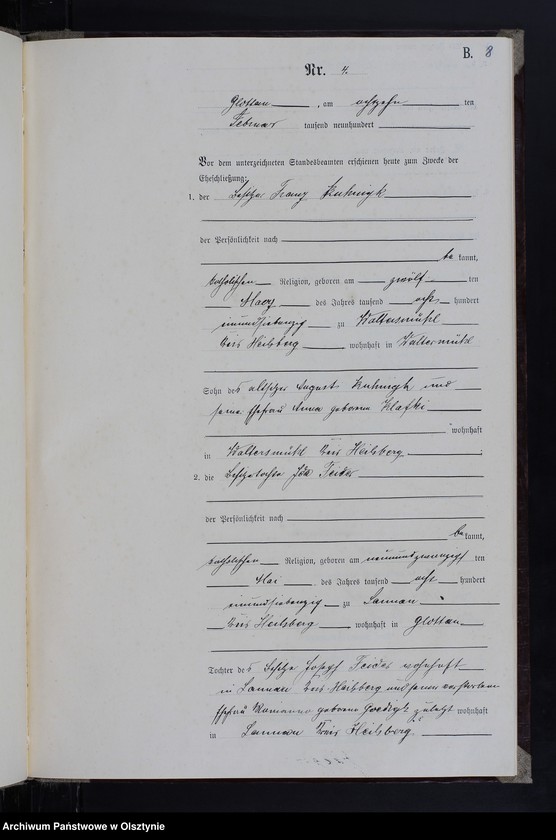 B. 8
Nr. 4.
Glottau, am achtzehn ten
Februar tausend neunhundert
Vor dem unterzeichneten Standesbeamten erschienen heute zum Zwecke der
Eheschließung:
1. der Besitzer Franz Kuhnigk
der Persönlichkeit nach
be kannt,
katholischen Religion, geboren am zwölf ten
Maerz des Jahres tausend acht hundert
einundsiebenzig zu Waltersmühl
Kreis Heilsberg wohnhaft in Waltersmühl
Sohn des Altsitzer August Kuhnigk und
seine Ehefrau Anna geborene Klafki
wohnhaft
in Waltersmühl Kreis Heilsberg
2. die Besitzertochter
der Persönlichkeit nach
be kannt,
katholischen Religion, geboren am neunundzwanzigst ten
Mai des Jahres tausend acht hundert
einundsiebenzig zu Launau
Kreis Heilsberg wohnhaft in Glottau
Tochter des Besitzer Joseph wohnhaft
in Launau Kreis Heilsberg und seiner verstorbenen
Ehefrau geborene zuletzt wohnhaft
in Launau Kreis Heilsberg.
Archiwum Państwowe w Olsztynie